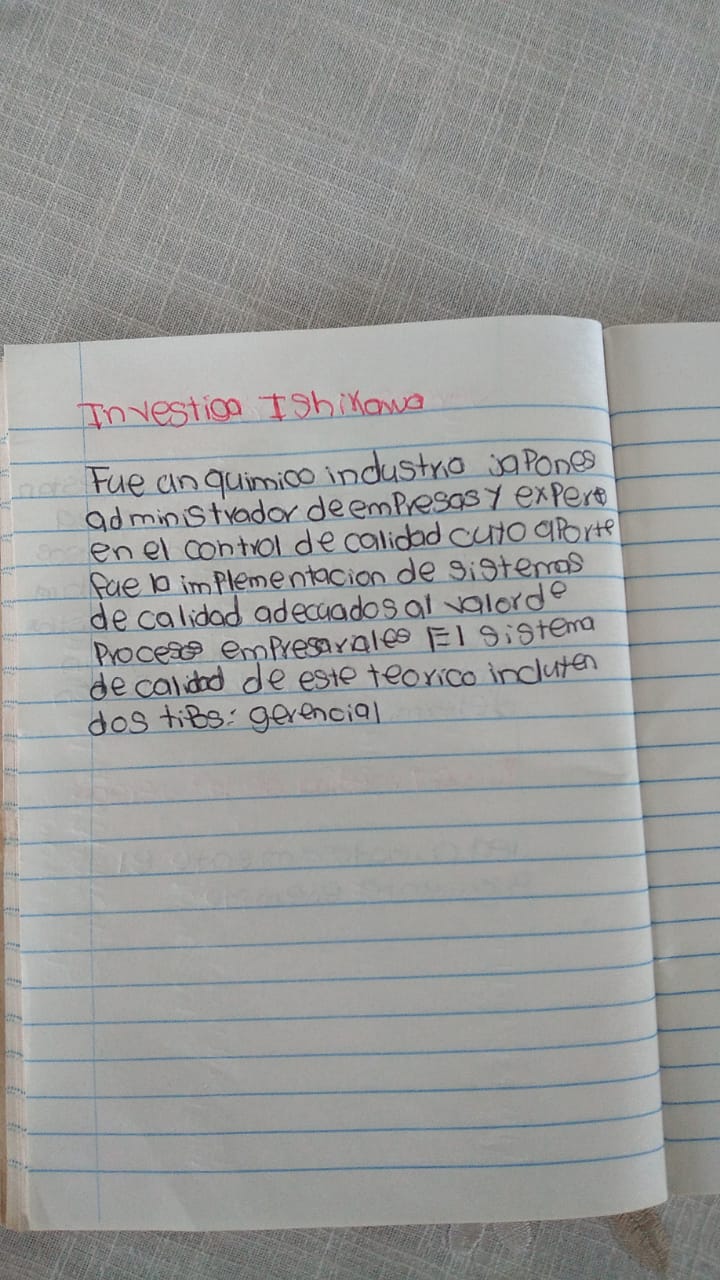 Investiga Ishikawa
Fue un quimico industrio japones
administrador de empresas y experto
en el control de calidad cuyo aporte
fue la implementacion de sistemas
de calidad adecuados al valor de
Proceso empresariales El sistema
de calidad de este teorico incluyen
dos tipos: gerencial